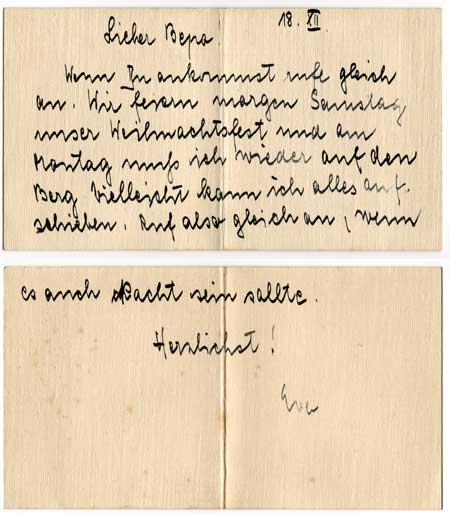 18. XII
Lieber Bepo.
Wenn Du ankommst rufe gleich
an. Wir feiern morgen Samstag
unser Weihnachtsfest und am
Montag muß ich wieder auf den
Berg. Vielleicht kann ich alles auf-
schieben. Ruf also gleich an, wenn
es auch Nacht sein sollte.
Herzlichst!
Eva